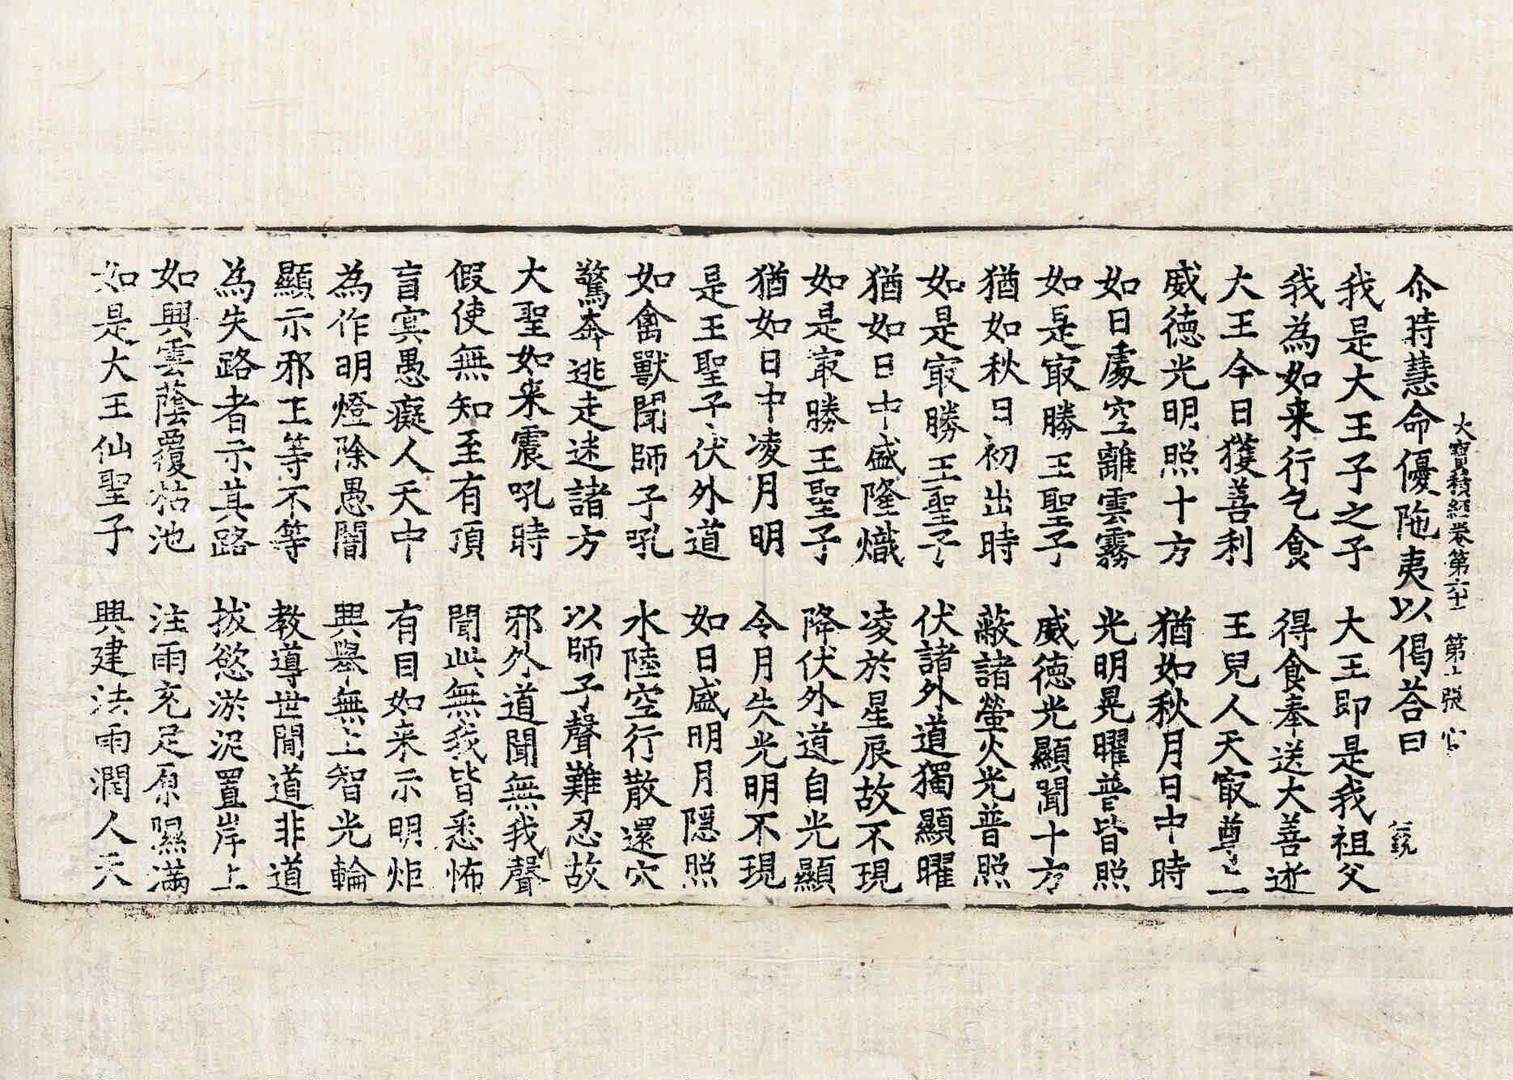 尒時慧命優陁夷以偈荅曰
大寶積經卷第六十一 第十張 官
我是大王子之子 大王即是我祖父
我為如来行乞食 得食奉送大善逝
大王今日獲善利 王兒人天㝡尊上
威德光明照十方 猶如秋月日中時
如日處空離雲霧 光明晃曜普皆照
如是㝡勝王聖子 威德光顯聞十方
猶如秋日初出時 蔽諸螢火光普照
如是㝡勝王聖子 伏諸外道獨顯曜
猶如日中盛隆熾 凌於星辰故不現
如是㝡勝王聖子 降伏外道自光顯
猶如日中凌月明 令月失光明不現
是王聖子伏外道 如日盛明月隱照
如禽獸聞師子吼 水陸空行散還穴
驚奔逃走迷諸方 以師子聲難忍故
大聖如来震吼時 邪外道聞無我聲
假使無知至有頂 聞此無我皆悉怖
盲冥愚癡人天中 有目如来示明炬
為作明燈除愚闇 興舉無上智光輪
顯示邪正等不等 教導世間道非道
為失路者示其路 拔慾淤泥置岸上
如興雲蔭覆枯池 注雨充足原隰滿
如是大王仙聖子 興建法雨潤人天